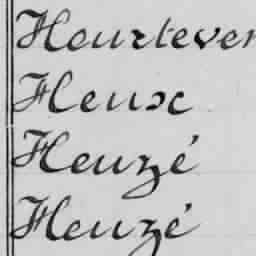 Heurtever
Heux
Heuzé
Heuzé